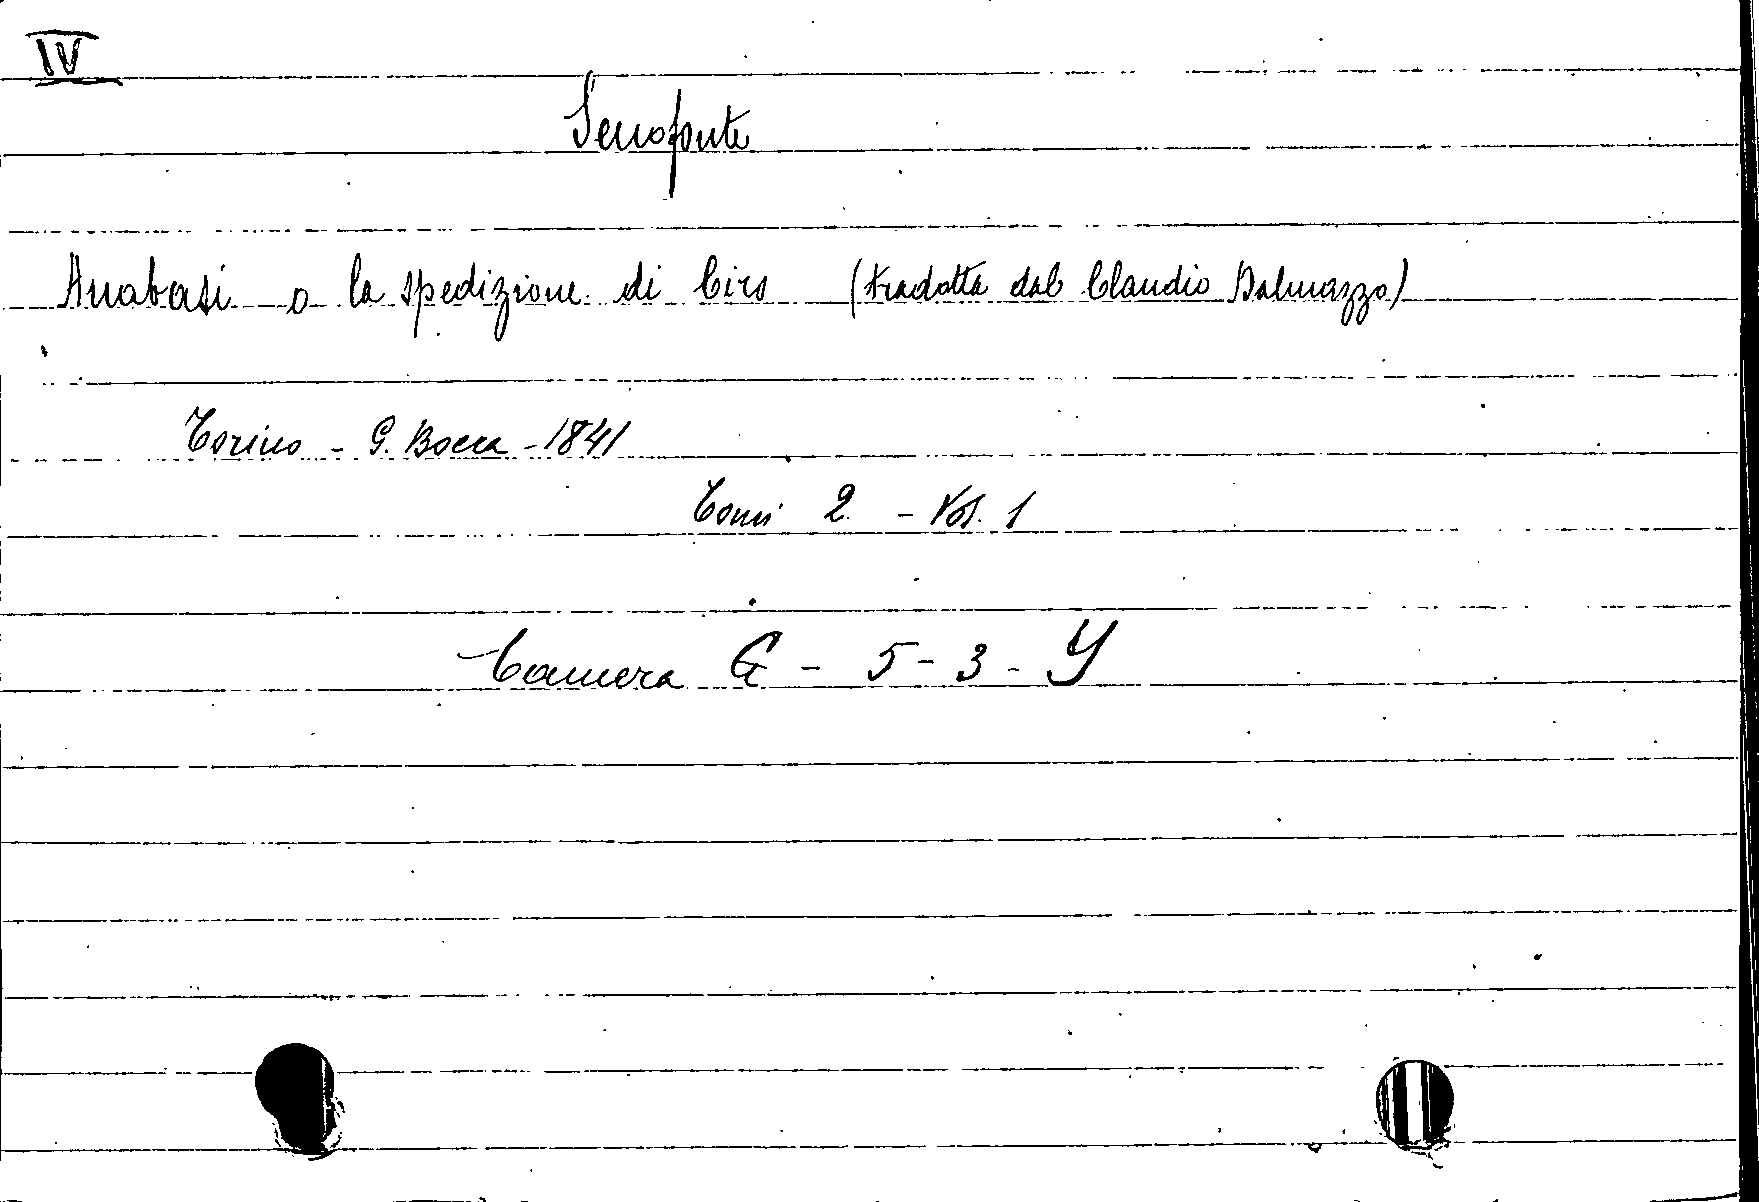 IV
Senofonte
Anabasi o la spedizione di Ciro (tradotta dal Claudio Dalmazzo)
Torino - G. Bocca - 1841
Tomi 2 - Vol. 1
Camera G - 5 - 3 - Y